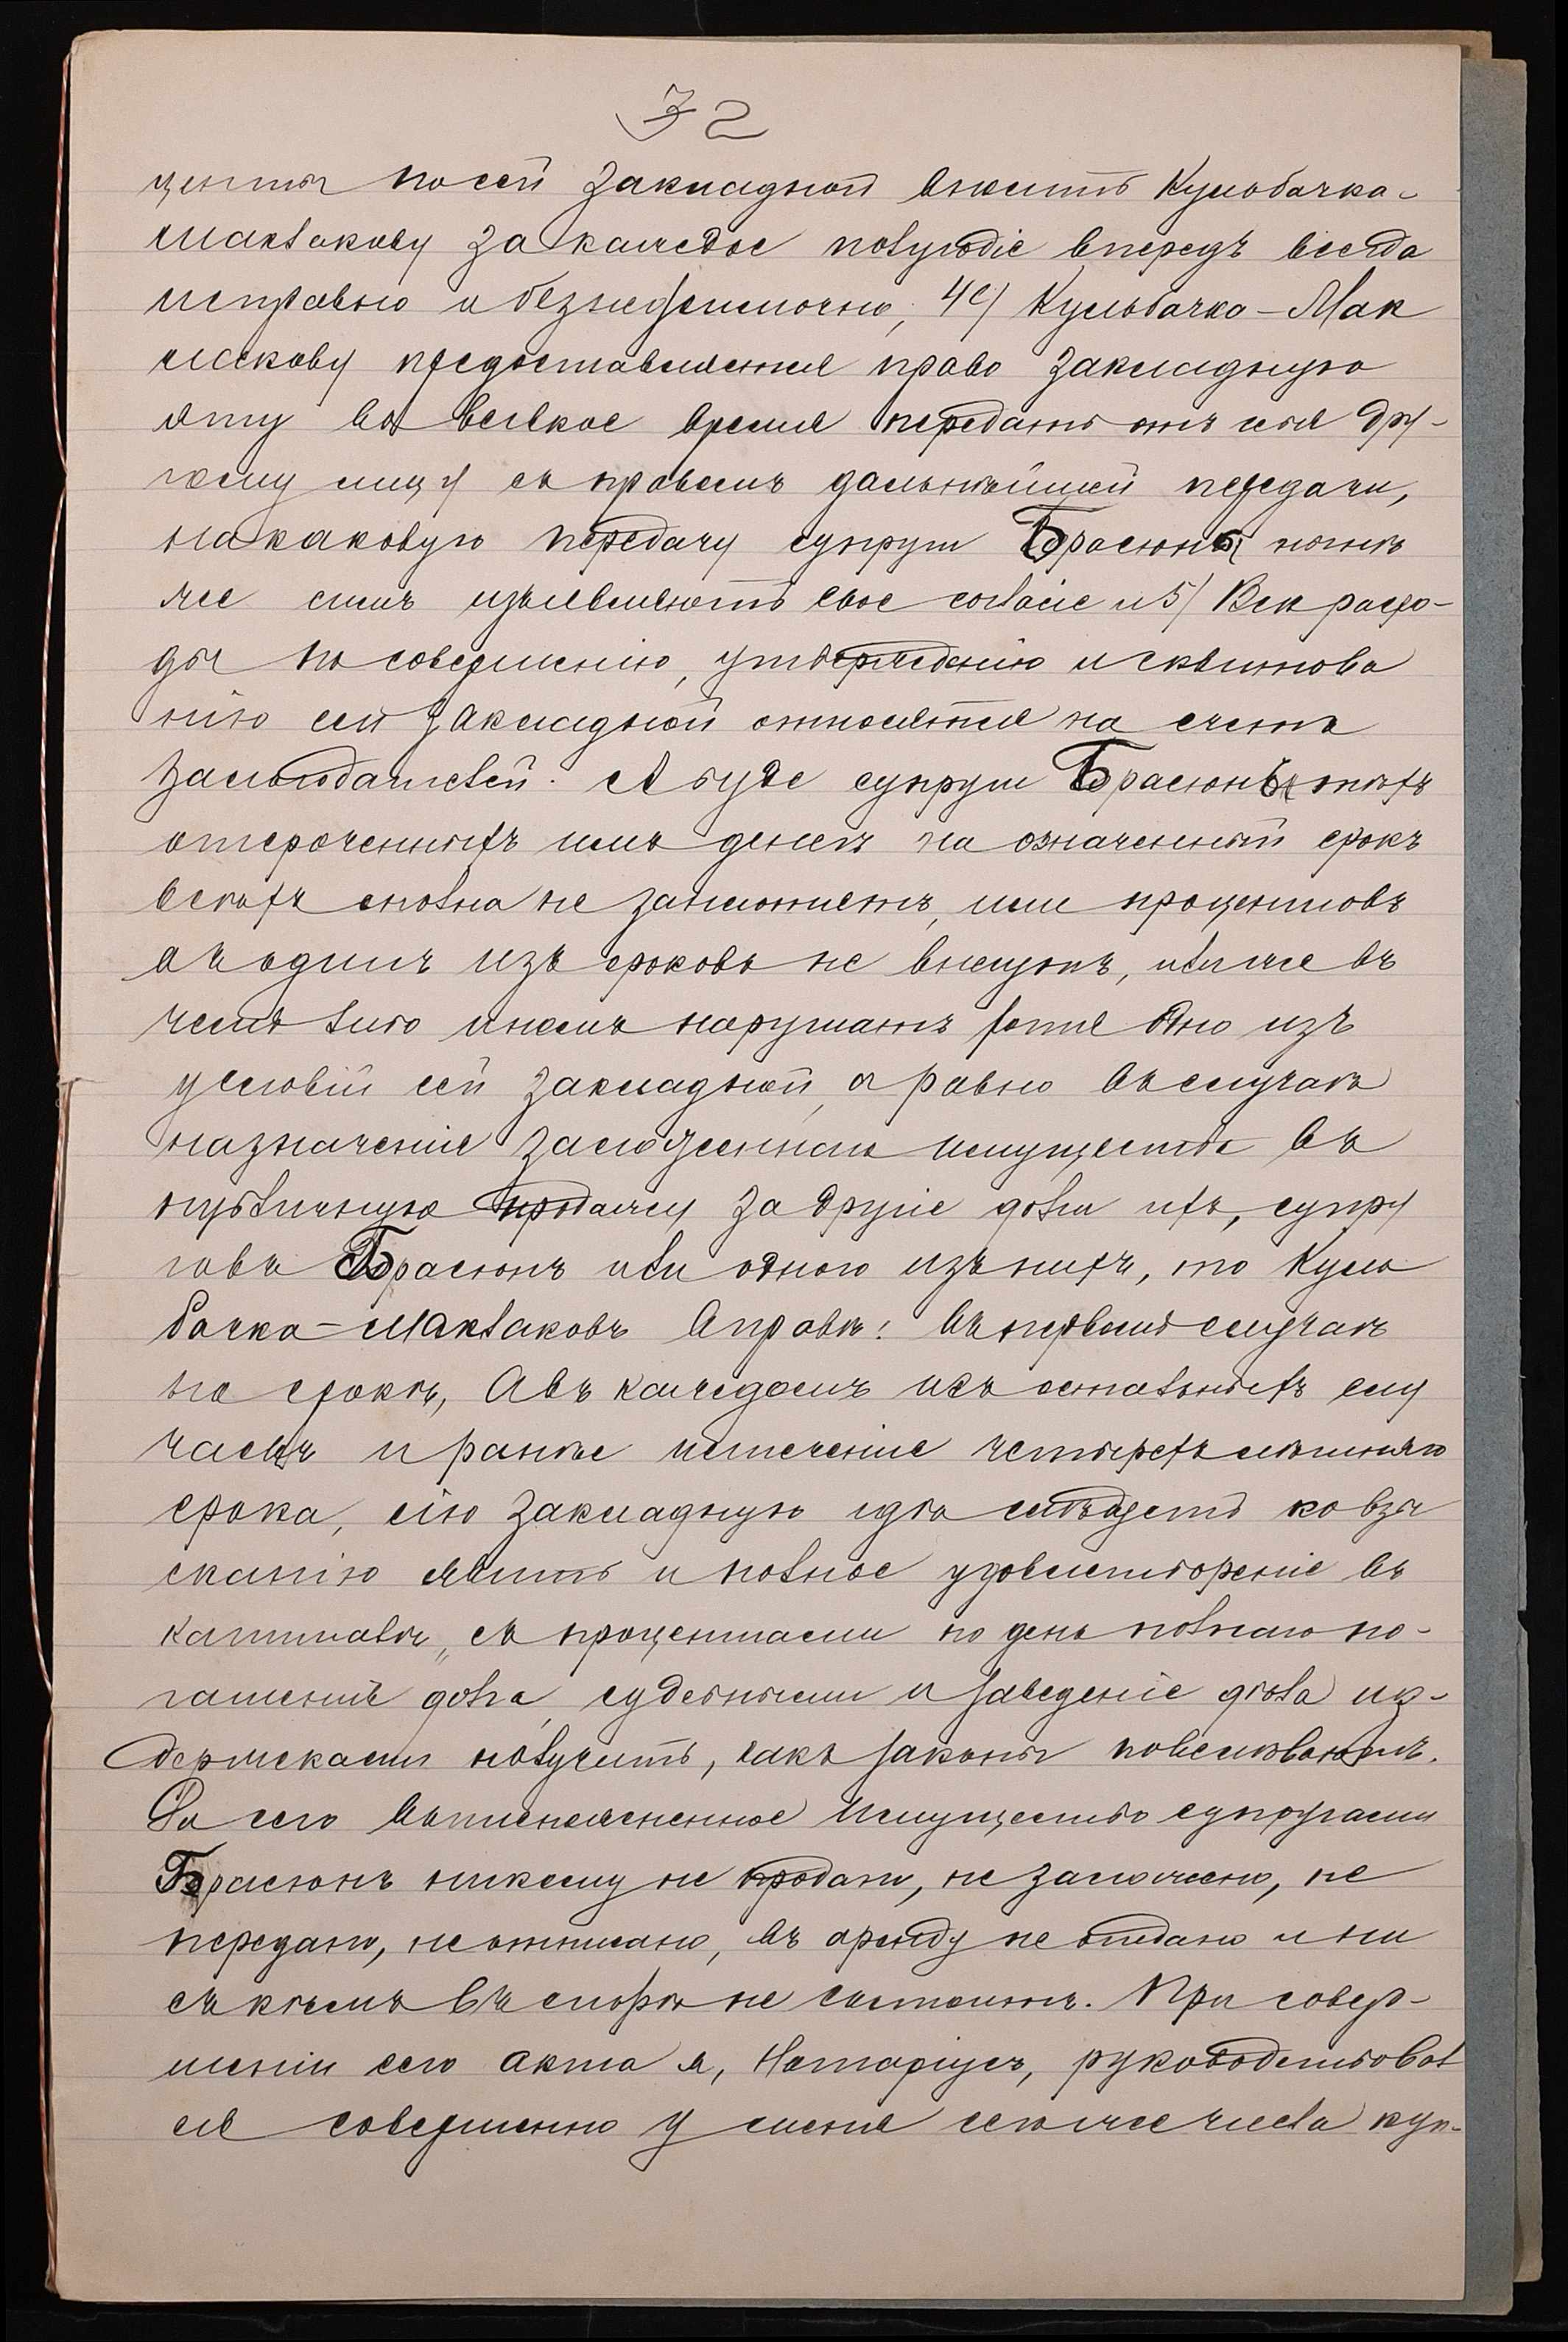 32
центы по сей закладной вносить Кульбачка-
Максакову за каждое полугодіе впередъ всегда
исправно и безнедоимочно; 4е) Кульбачка-Мак
сакову предоставляется право закладную
эту во всякое время передать отъ себя дру-
гому лицу съ правомъ дальнѣйшей передачи,
на каковую передачу супруги Брасюнъ нынѣ
же симъ изъявляютъ свое согласіе и 5) Всѣ расхо-
ды по совершенію, утвержденію и сквитова
нію сей закладной относятся на счетъ
залогодателей. А буде супруги Брасюнъ тѣхъ
отсроченныхъ имъ денегъ на означенный срокъ
всѣхъ сполна не заплотимъ, или процентовъ
въ одинъ изъ сроковъ не внесутъ, или же въ
чемъ либо иномъ нарушатъ хотя одно изъ
условій сей закладной, а равно въ случаѣ
назначеніе заложеннаго имущества въ
публичную продажу за другіе долги ихъ, супру
говъ Брасюнъ или одного изъ нихъ, то Куль
бачка-Максаковъ вправѣ: въ первомъ случаѣ
по срокѣ, а въ каждомъ изъ остальныхъ слу
чаевъ и ранѣе истеченіе четырехъ лѣтняго
срока, сію закладную гдѣ слѣдуетъ ко взы
сканію явить и полное удовлетвореніе въ
капиталѣ, съ процентами по день полнаго по-
гашенія долга, судебными и за веденіе дѣла из-
держками получить, какъ законы повелѣваютъ.
До сего вышеполсненное имущество супругами
Брасюнъ никому не продано, не заложено, не
передано, не отписано, въ аренду не отдано и ни
съ кѣмъ въ спорѣ не состоитъ. При совер-
шеніи сего акта я, Нотаріусъ, руководствовал
ся совершенно у меня сего же числа куп-